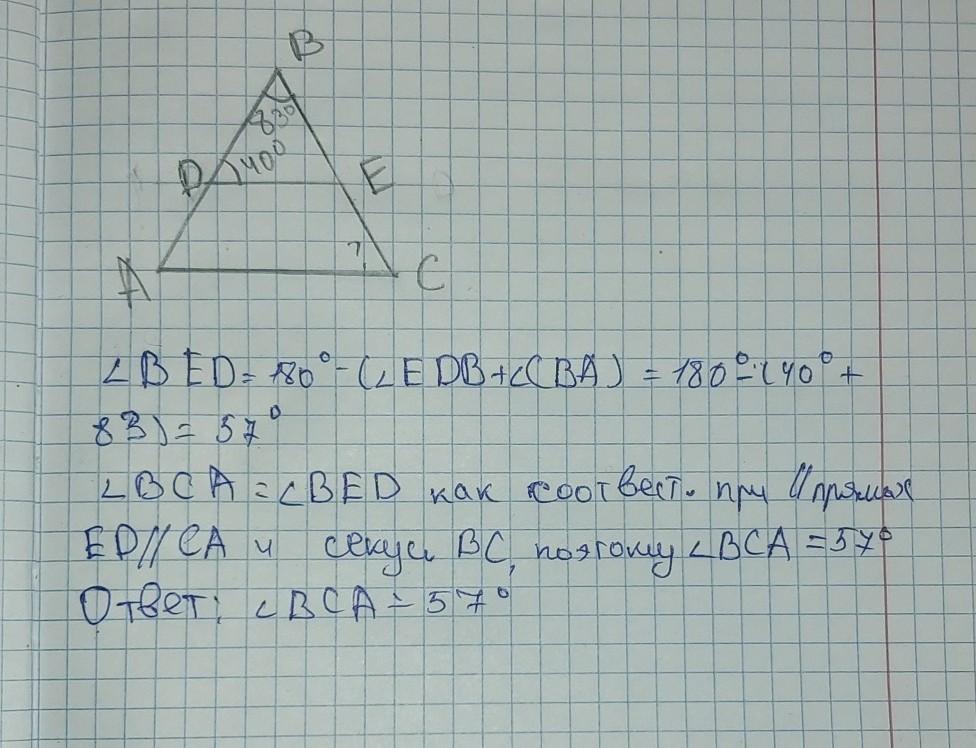 B
83°
D 40° E
?
A C
∠BED = 180° - (∠EDB + ∠CBA) = 180° - (40° +
83) = 57°
∠BCA = ∠BED как соотвест. при // прямых
ED // CA и секущ BC, поэтому ∠BCA = 57°
Ответ: ∠BCA = 57°